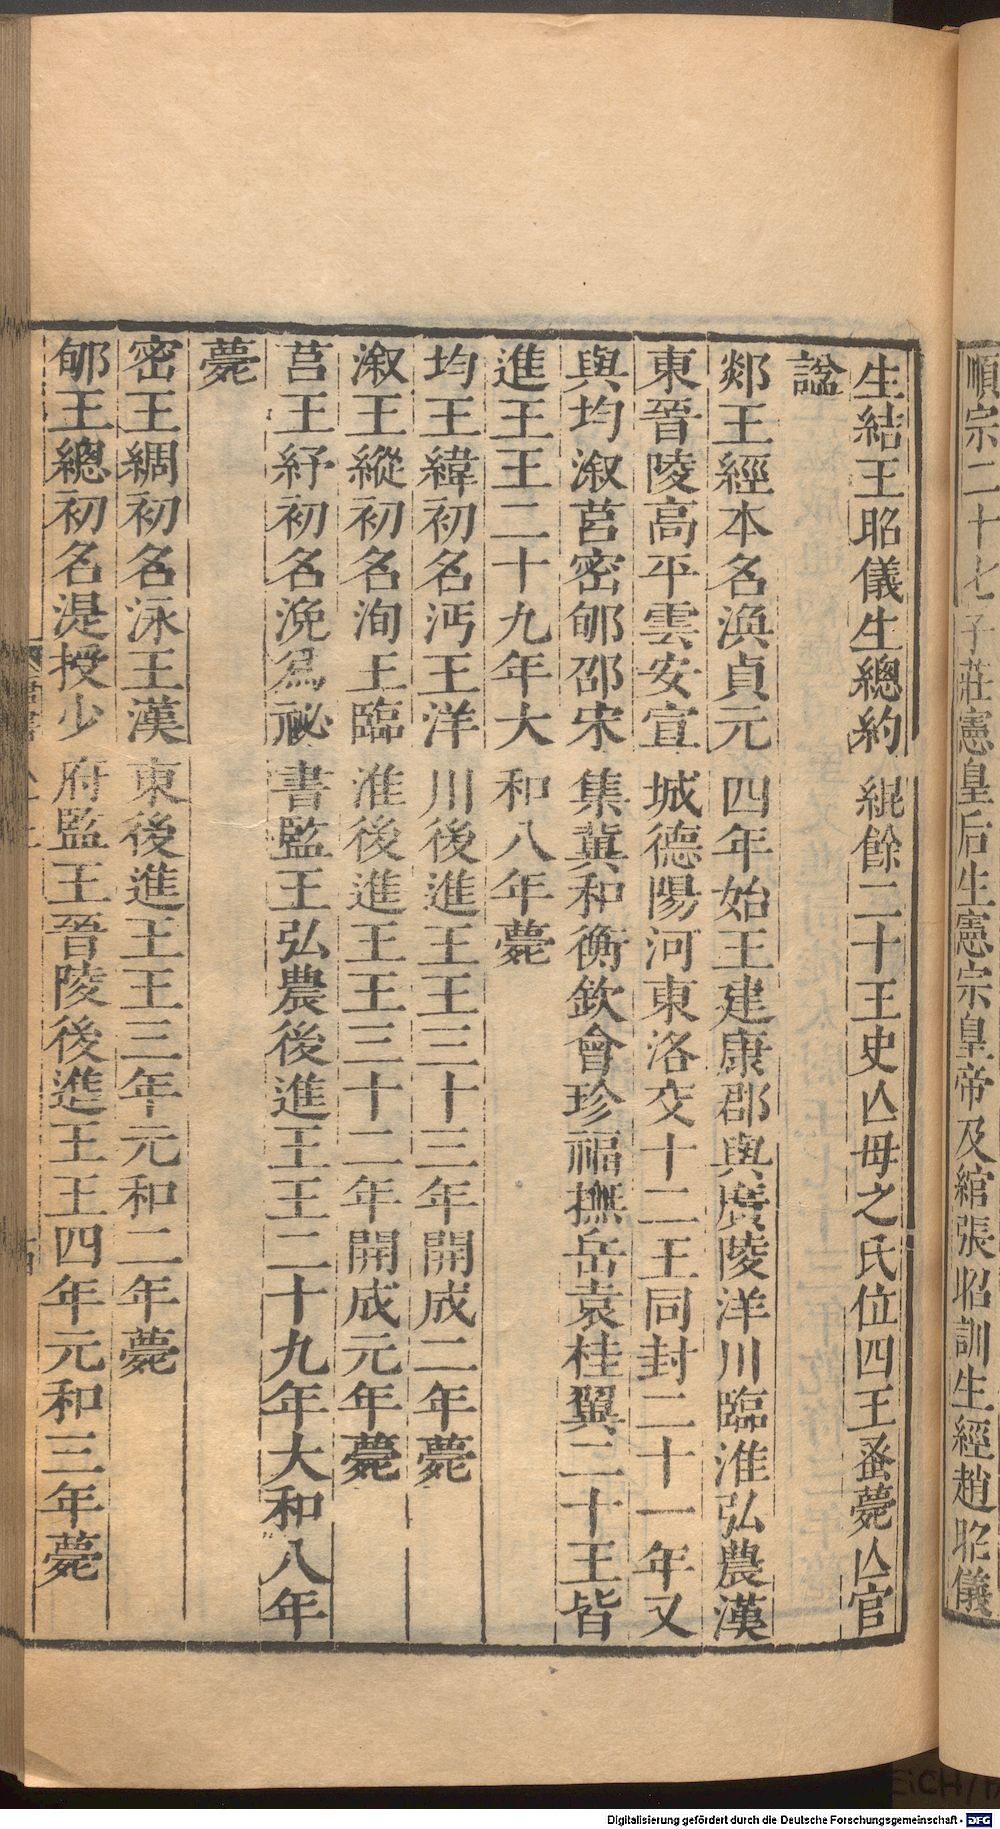 順宗二十七子莊憲皇后生憲宗皇帝及綰張昭訓生經趙昭儀
生結王昭儀生總約緄餘二十王史亾母之氏位四王蚤薨亾官
諡
郯王經本名渙貞元四年始王建康郡與廣陵洋川臨淮弘農漢
東晉陵高平雲安宣城德陽河東洛交十二王同封二十一年又
與均溆莒密郇邵宋集冀和衡欽會珍福撫岳袁桂翼二十王皆
進王王二十九年大和八年薨
均王緯初名沔王洋川後進王王三十三年開成二年薨
溆王縱初名洵王臨淮後進王王三十二年開成元年薨
莒王紓初名浼爲祕書監王弘農後進王王二十九年大和八年
薨
密王綢初名泳王漢東後進王王三年元和二年薨
郇王總初名湜授少府監王晉陵後進王王四年元和三年薨
Digitalisierung gefördert durch die Deutsche Forschungsgemeinschaft - DFG